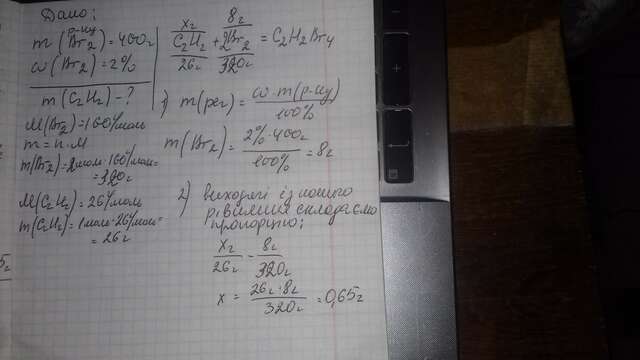 Дано:
m(р-ну Br2)=400г
ω(Br2)=2%
m(C2H2)-?
M(Br2)=160г/моль
m=n·M
m(Br2)=2моль·160г/моль=
=320г
M(C2H2)=26г/моль
m(C2H2)=1моль·26г/моль=
=26г
xг 8г
C2H2+2Br2=C2H2Br4
26г 320г
1) m(реч)=ω·m(р-ну)/100%
m(Br2)=2%·400г/100%=8г
2) виходячі із нашого
рівняння складаємо
пропорцію:
xг/26г - 8г/320г
x=26г·8г/320г=0,65г